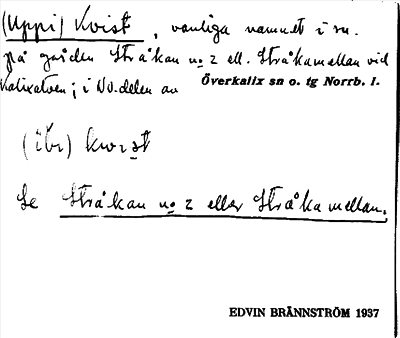 (Uppi) Kvist , vanliga namnet i sn.
på gården Stråkan no 2 ell. Stråkamellan vid
Kalixälven; i NO.delen av Överkalix sn o. tg Norrb. l.
(ibr) kwist
Se Stråkan no 2 eller Stråkamellan.
EDVIN BRÄNNSTRÖM 1937